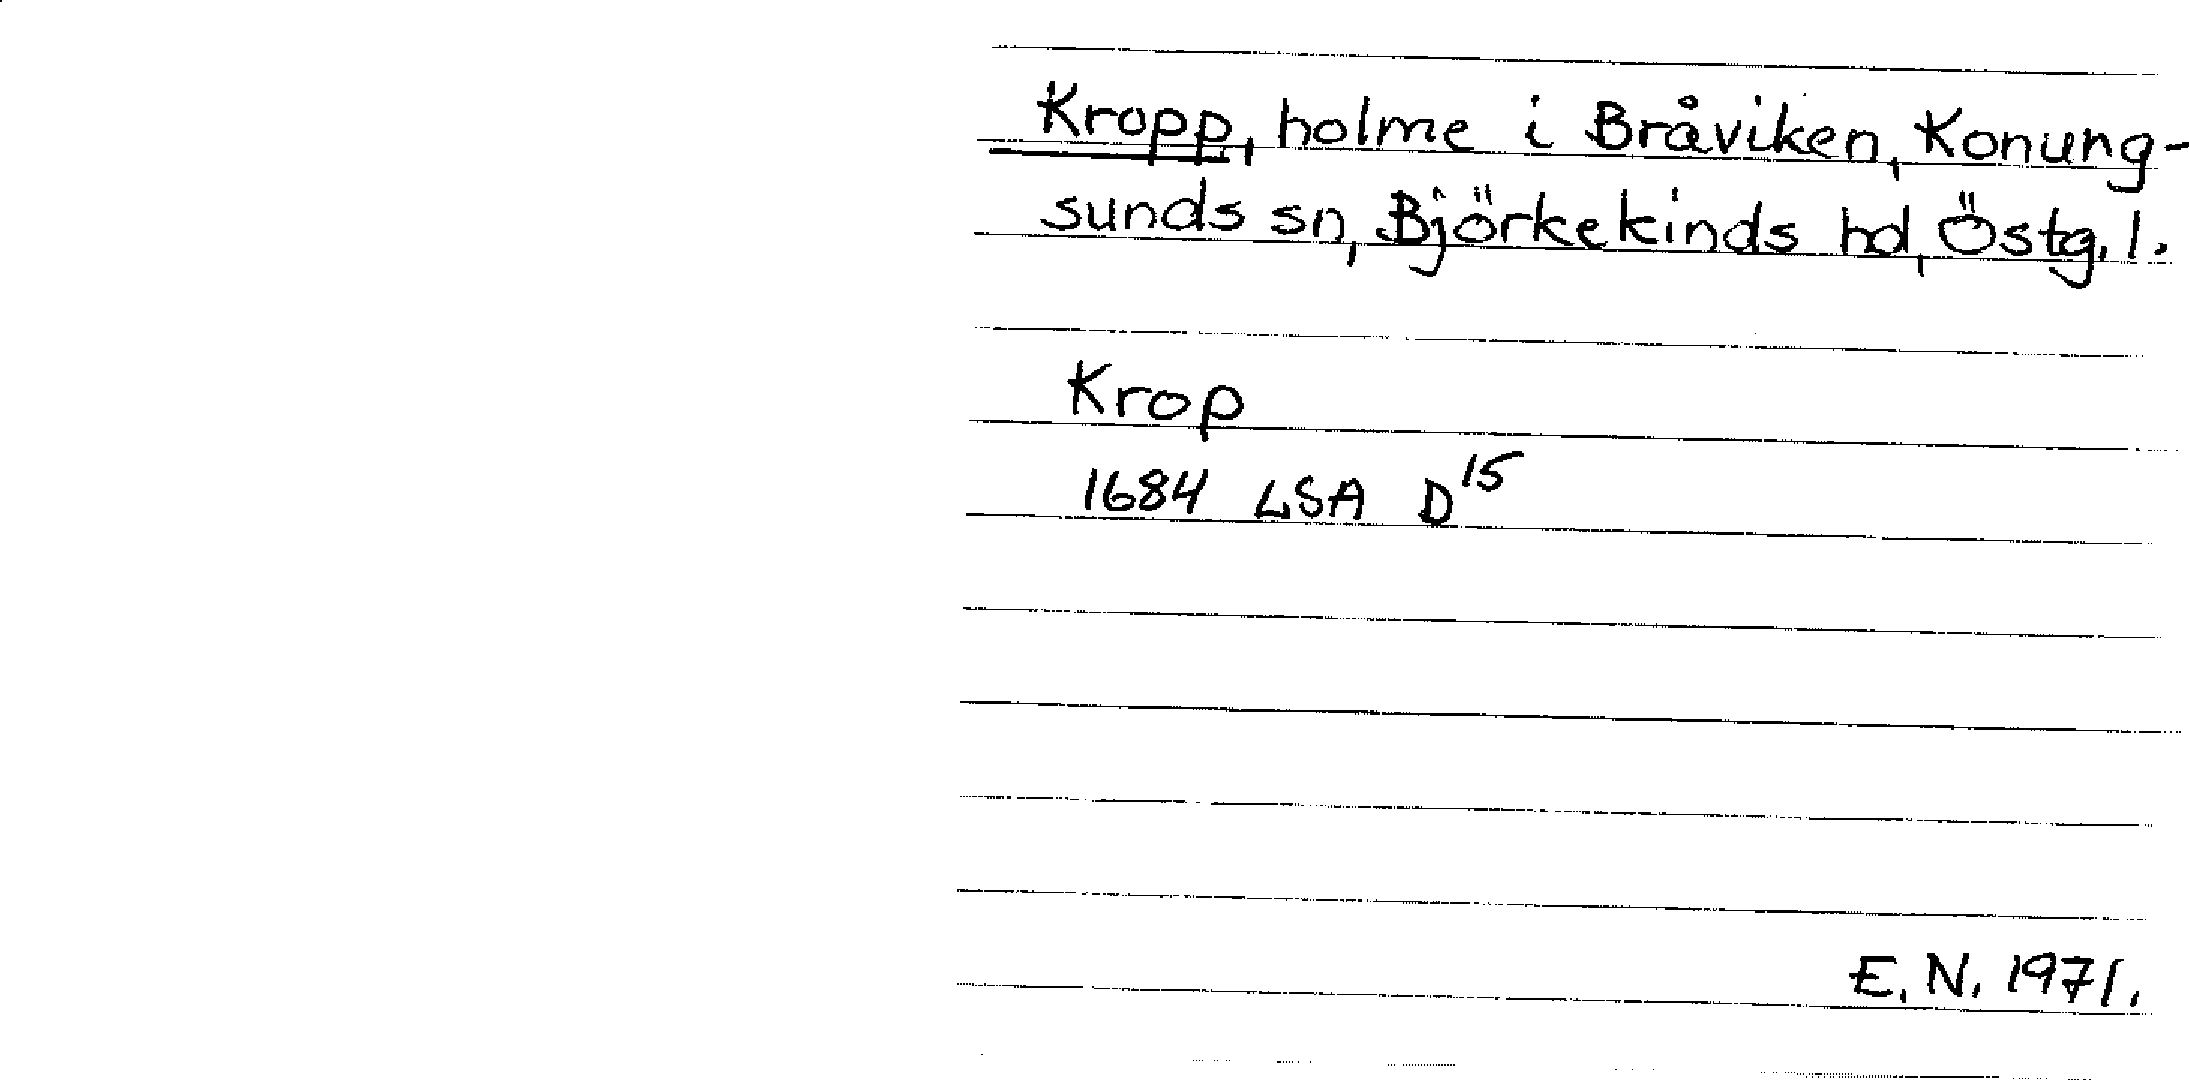 Kropp, holme i Bråviken, Konung-
sunds sn, Björkekinds hd, Östg. l.
Krop
1684 LSA D15
E. N. 1971.